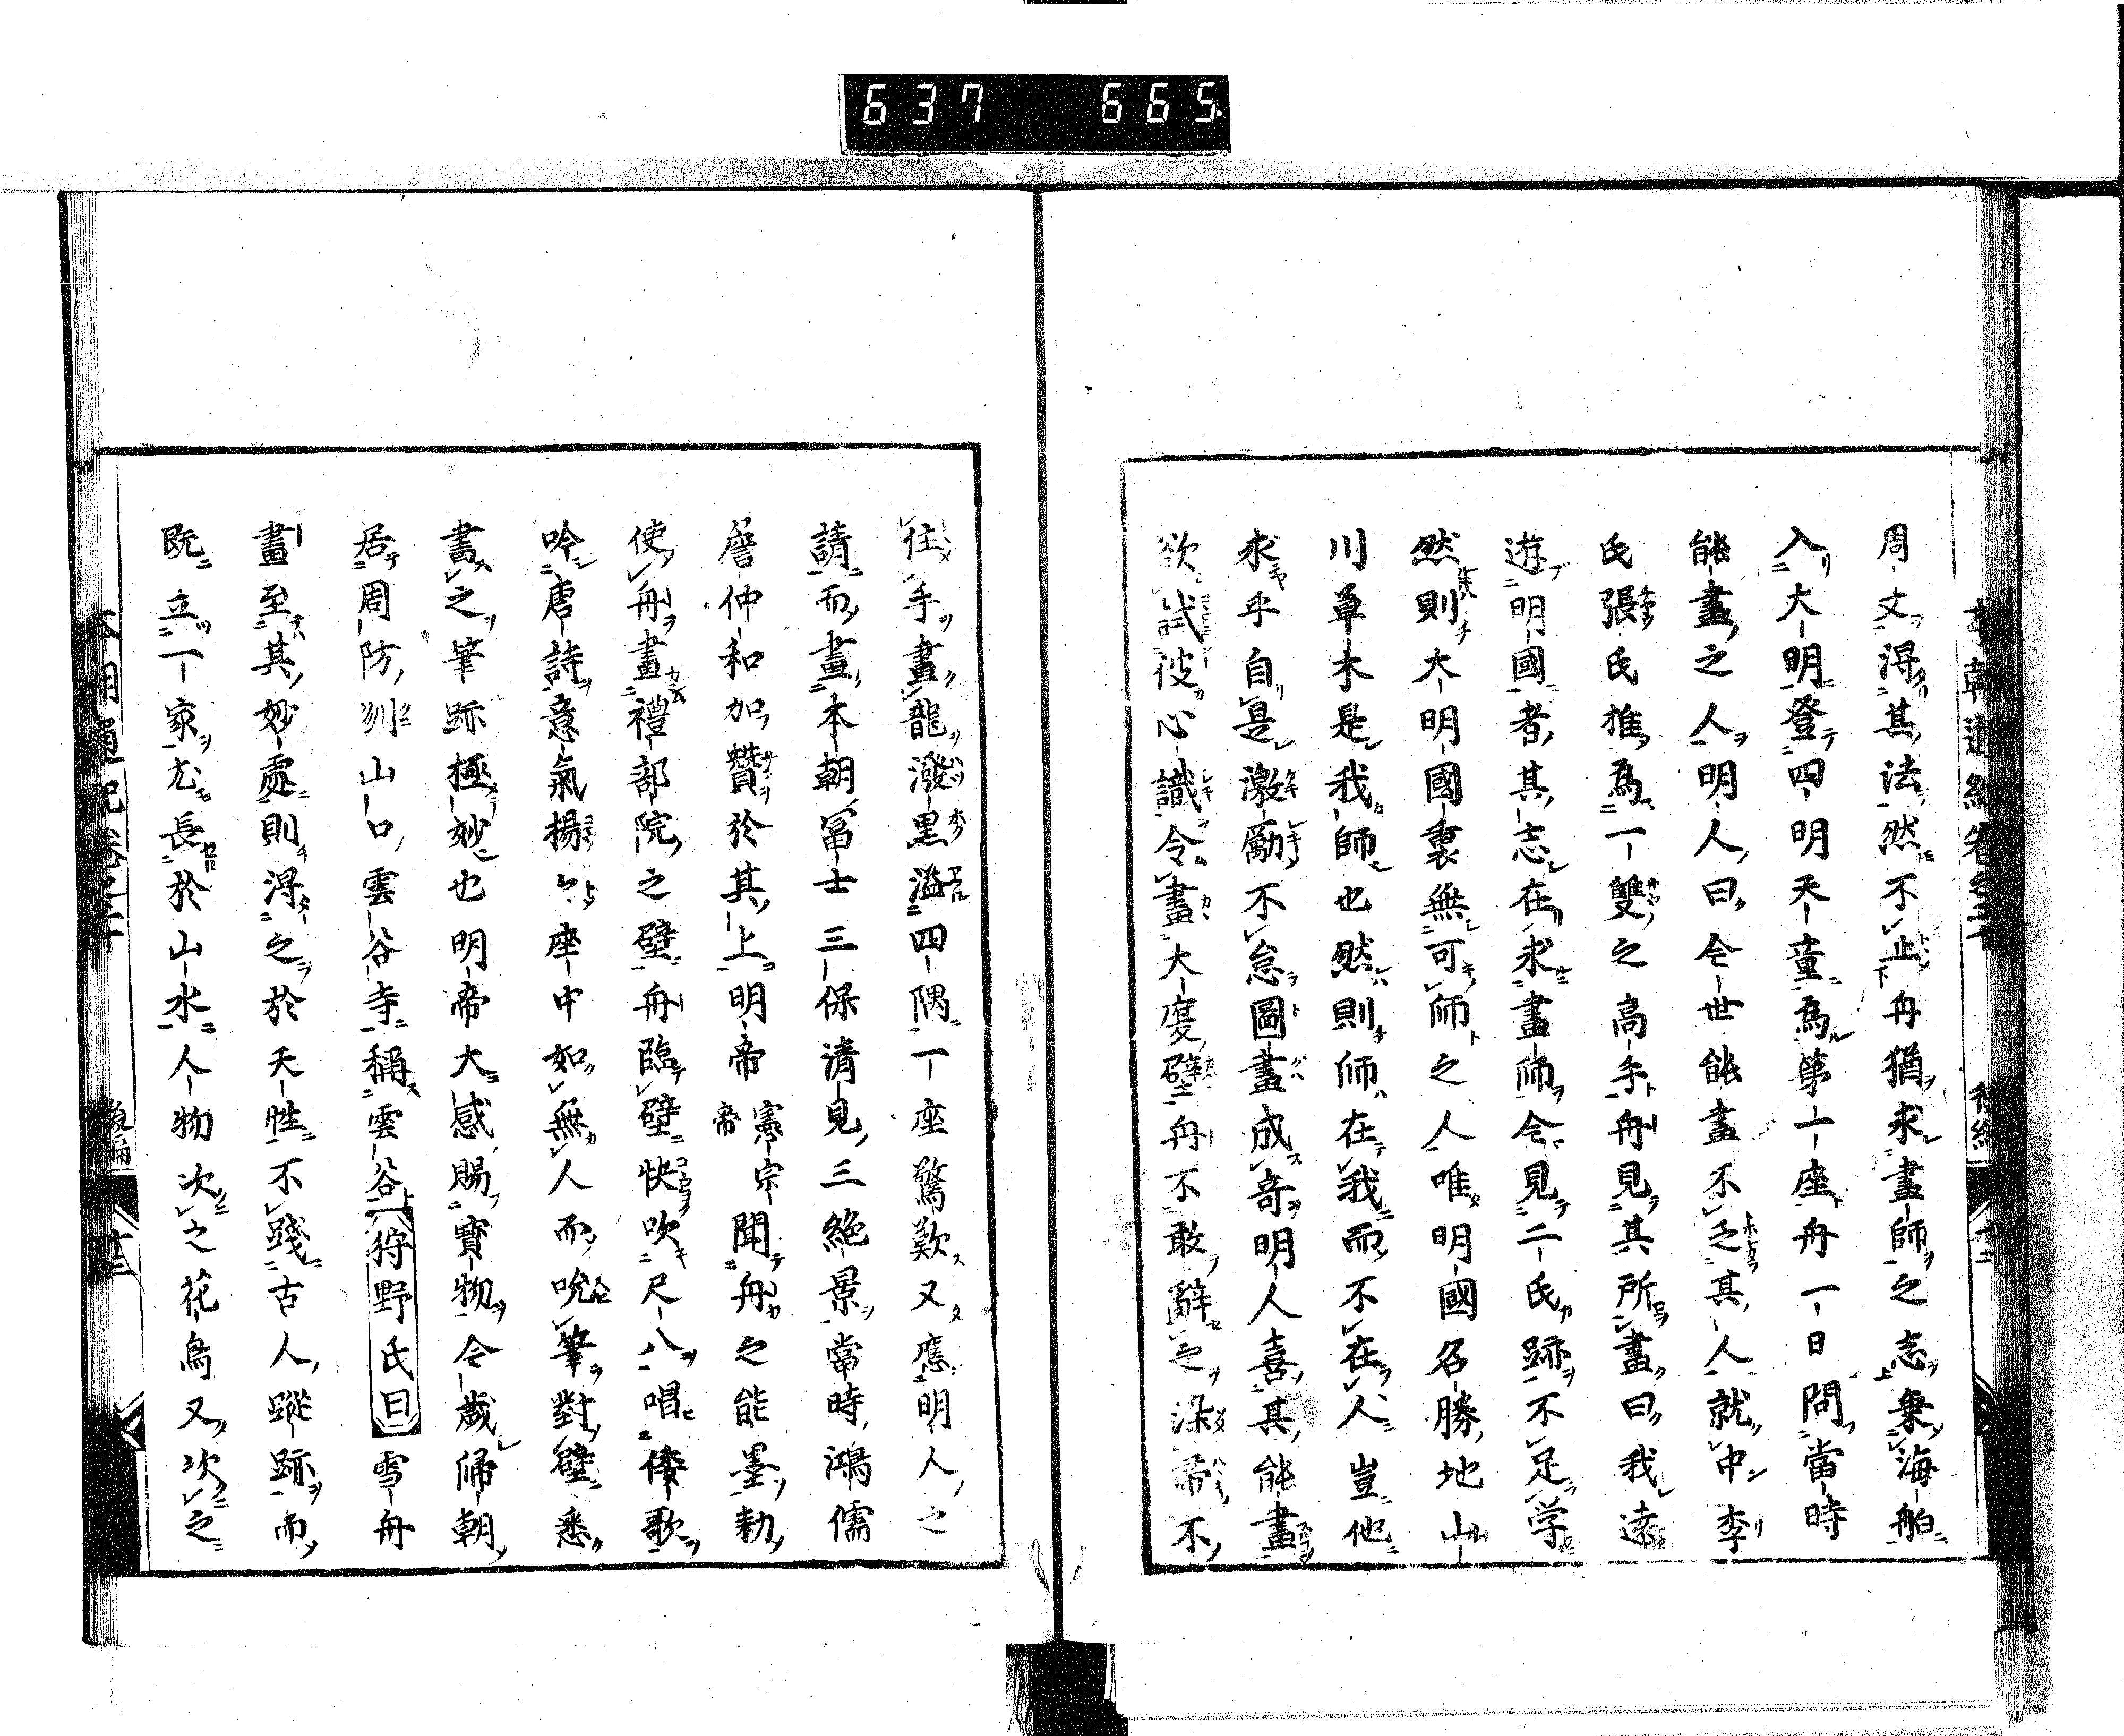 637 665
周文得其法然不止舟猶求畫師之志乗海舶
入大明登四明天童爲第一座舟一日問當時
能畫之人明人曰今世能畫不乏其人就中李
氏張氏推爲一雙之高手舟見其所畫曰我遠
遊明國者其志在求畫師今見二氏跡不足学
然則大明國裏無可師之人唯明國名勝地山
川草木是我師也然則師在我而不在人豈他
求乎自是激勵不怠圖畫成奇明人喜其能畫
欲試彼心識令畫大廈壁舟不敢辭之深帚不
任手畫龍潑黒溢四隅一座驚歎又應明人之
請而畫本朝冨士三保清見三絶景當時鴻儒
詹仲和加贊於其上明帝憲宗帝聞舟之能墨勅
使舟畫禮部院之壁舟臨壁快吹尺八唱倭歌
吟唐詩意氣揚々座中如無人而吮筆對壁悉
畫之筆跡極妙也明帝大感賜寳物今歳帰朝
居周防州山口雲谷寺稱雲谷狩野氏曰雪舟
畫至其妙處則得之於天性不踐古人蹤跡而
既立一家尤長於山水人物次之花鳥又次之
後編